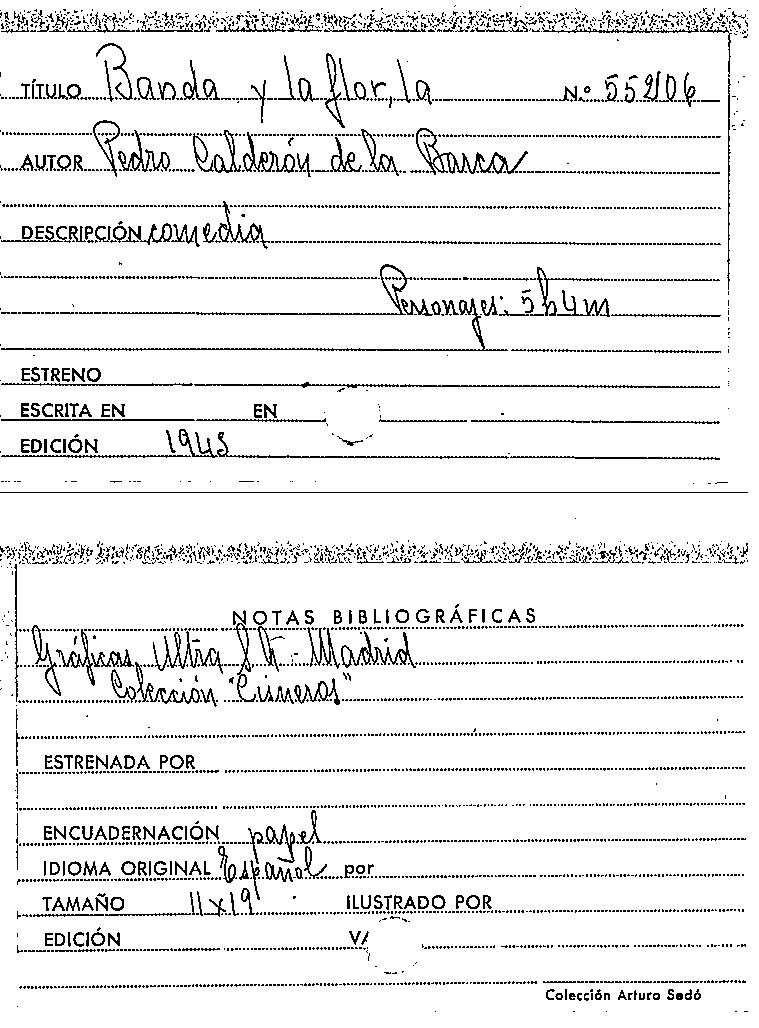 TÍTULO Banda y la flor, la N.º 55206
AUTOR Pedro Calderón de la Barca
DESCRIPCIÓN comedia
Personajes: 5h4m
ESTRENO
ESCRITA EN EN
EDICIÓN 1945
NOTAS BIBLIOGRÁFICAS
Gráficas Ultra S.A - Madrid
Colección "Cisneros"
ESTRENADA POR
ENCUADERNACIÓN papel
IDIOMA ORIGINAL Español por
TAMAÑO 11x19 ILUSTRADO POR
EDICIÓN
Colección Arturo Sedó